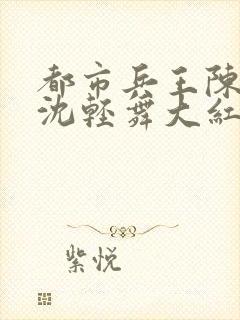 都市兵王陳
沈輕舞大紅
紫悦